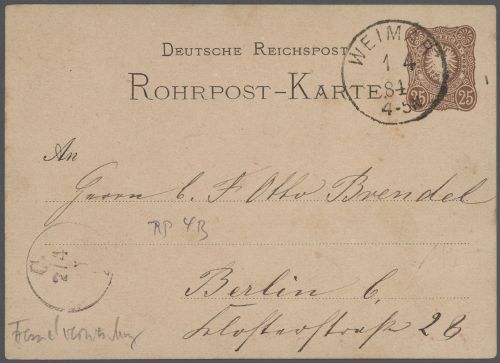 DEUTSCHE REICHSPOST
ROHRPOST-KARTE
WEIMAR
1 4
84
4-5N
25 25
An
Herrn C. F. Otto Brendel
RP 4B
Berlin C.
Klosterstraße 28
C.
2/4